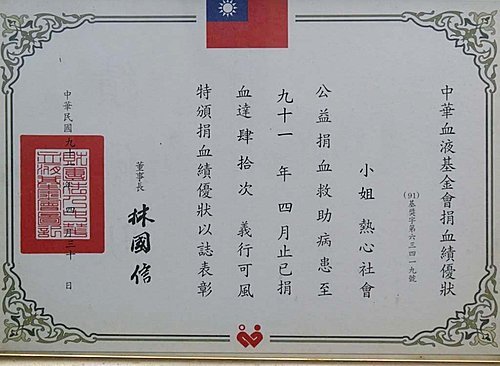 中華血液基金會捐血績優狀
(91)基獎字第六三四一九號
小姐 熱心社會
公益捐血救助病患至
九十一 年 四月止已捐
血達肆拾次 義行可風
特頒捐血績優狀以誌表彰
董事長 林國信
中華民國九十 年 四 三十 日